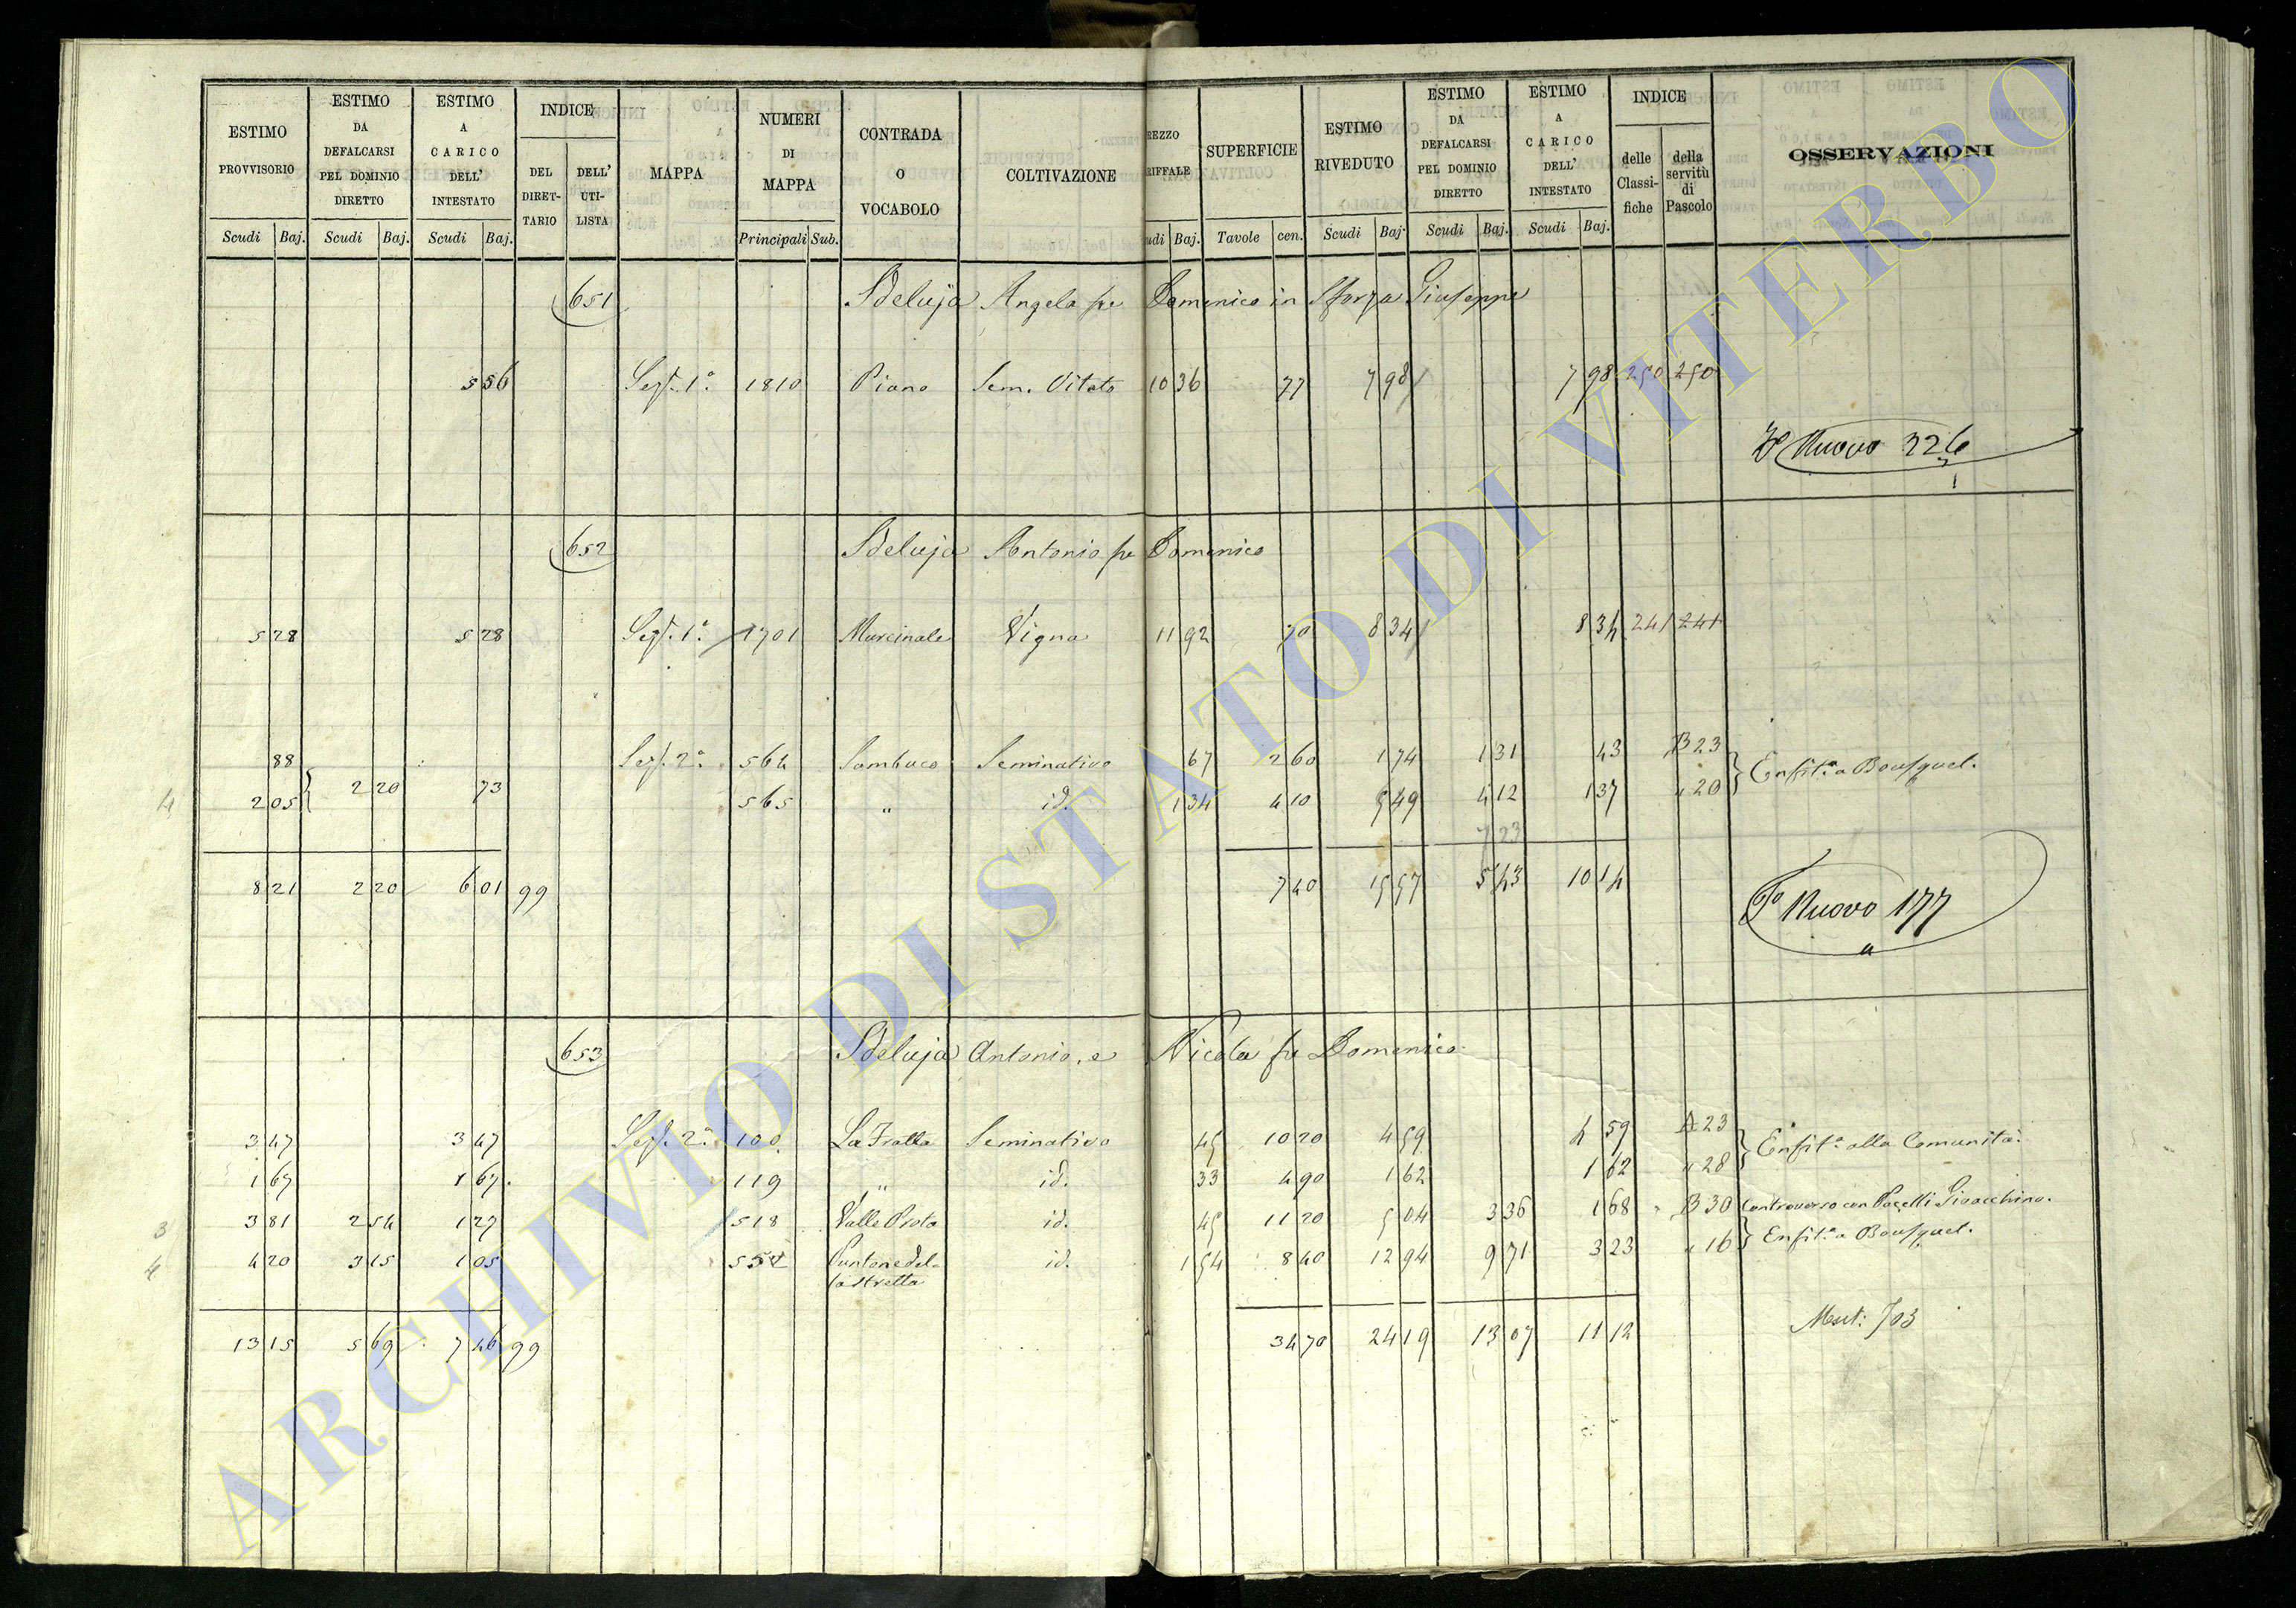 ESTIMO PROVVISORIO Scudi Baj. ESTIMO DA DEFALCARSI PEL DOMINIO DIRETTO Scudi Baj. ESTIMO A CARICO DELL' INTESTATO Scudi Baj. INDICE DEL DIRETTARIO DELL' UTILISTA MAPPA NUMERI DI MAPPA Principali Sub. CONTRADA O VOCABOLO COLTIVAZIONE REZZO RIFFALE udi Baj. SUPERFICIE Tavole cen. ESTIMO RIVEDUTO Scudi Baj. ESTIMO DA DEFALCARSI PEL DOMINIO DIRETTO Scudi Baj. ESTIMO A CARICO DELL' INTESTATO Scudi Baj. INDICE delle Classifiche della servitù di Pascolo OSSERVAZIONI
651 Sdeluja Angela fu Domenico in Sforza Giuseppe
5 56 Sez. 1ª 1810 Piano Sem. Vitato 10 36 77 7 98 7 98 250 250
Fº Nuovo 326
652 Sdeluja Antonio fu Domenico
5 28 5 28 Sez. 1ª 1701 Murcinale Vigna 11 92 70 8 34 8 34 241 241
88 Sez. 2ª 564 Sambuco Seminativo 67 2 60 1 74 1 31 43 B 23
4 2 05 } 2 20 73 565 " id. 1 34 4 10 5 49 4 12 1 37 " 20 } Enfit.ª a Bousquet.
7 23
8 21 2 20 6 01 99 7 40 15 57 5 43 10 14
Fº Nuovo 177
653 Sdeluja Antonio, e Nicola fu Domenico
3 47 3 47 Sez. 2ª 100 La Fratta Seminativo 45 10 20 4 59 4 59 A 23
1 67 1 67 119 " id. 33 4 90 1 62 1 62 " 28 } Enfit.ª alla Comunità.
3 3 81 2 54 1 27 518 Valle Prota id. 45 11 20 5 04 3 36 1 68 B 30 Controverso con Pacelli Gioacchino.
4 4 20 3 15 1 05 554 Puntone della Stretta id. 1 54 8 40 12 94 9 71 3 23 " 16 } Enfit.ª a Bousquet.
13 15 5 69 7 46 99 34 70 24 19 13 07 11 12
703
ARCHIVIO DI STATO DI VITERBO